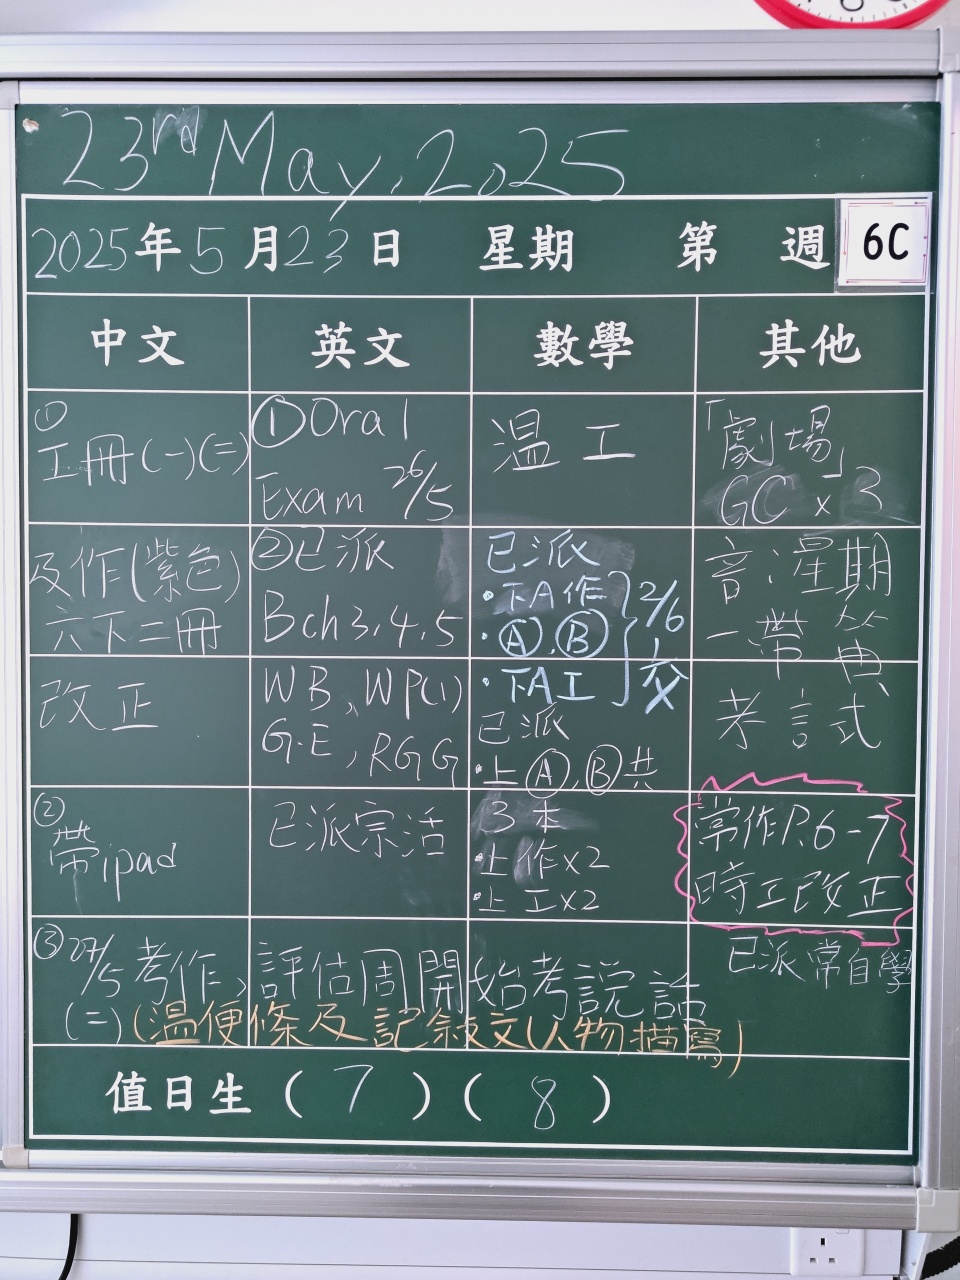 23rd May, 2025
2025年5月23日 星期 第 週 6C
中文 英文 數學 其他
①
工冊(一)(二)
及作(紫色)
六下二冊
改正
②
帶ipad
①Oral
Exam 26/5
②已派
Bch3.4.5
WB、WP(1)
G.E, RGG
已派宗活
溫工
已派
·下A作
·Ⓐ,Ⓑ
·下A工
2/6
交
已派
·上Ⓐ,Ⓑ共
3本
·上作x2
·上工x2
「劇場」
GC x 3
音:星期
一帶
考試
常作P.6-7
時工改正
已派常自學
③27/5考作、評估周開始考說話
(二)(溫便條及記敍文(人物描寫)
值日生(7)(8)